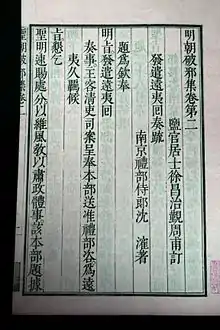 明朝破邪集卷第二
鹽官居士徐昌治覲周甫訂
發遣遠夷回奏疏
南京禮部侍郎沈㴶著
題爲欽奉
明旨發遣遠夷回
奏事王客清吏司案呈奉本部送准禮部咨爲遠
夷久羈候
旨懇乞
聖明速賜處分以維風教以肅政體事該本部題據
聖朝破邪集卷二